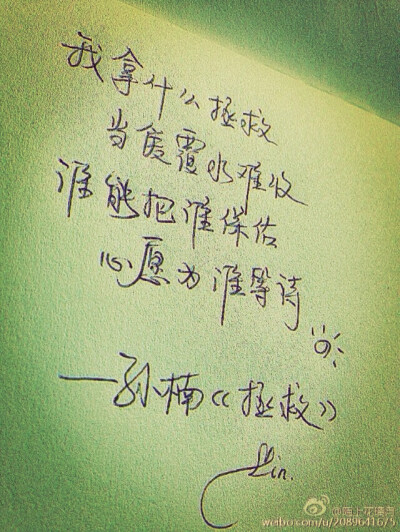 我拿什么拯救
当爱覆水难收
谁能把谁保佑
心愿为谁等待
——孙楠《拯救》
Lin.
weibo.com/u/2089641675